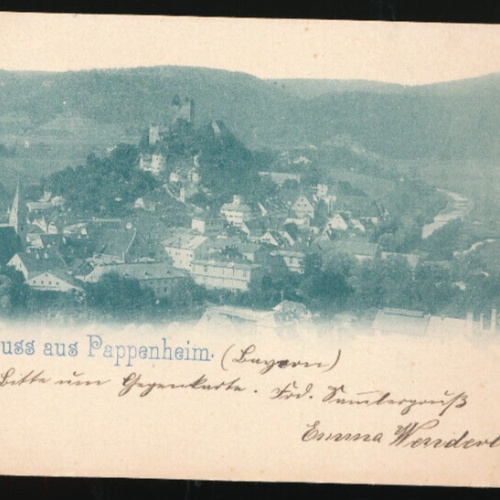 uss aus Pappenheim. (Bayern)
Bitte um Gegenkarte. Frd. Sammlergruß
Emma Wenderl